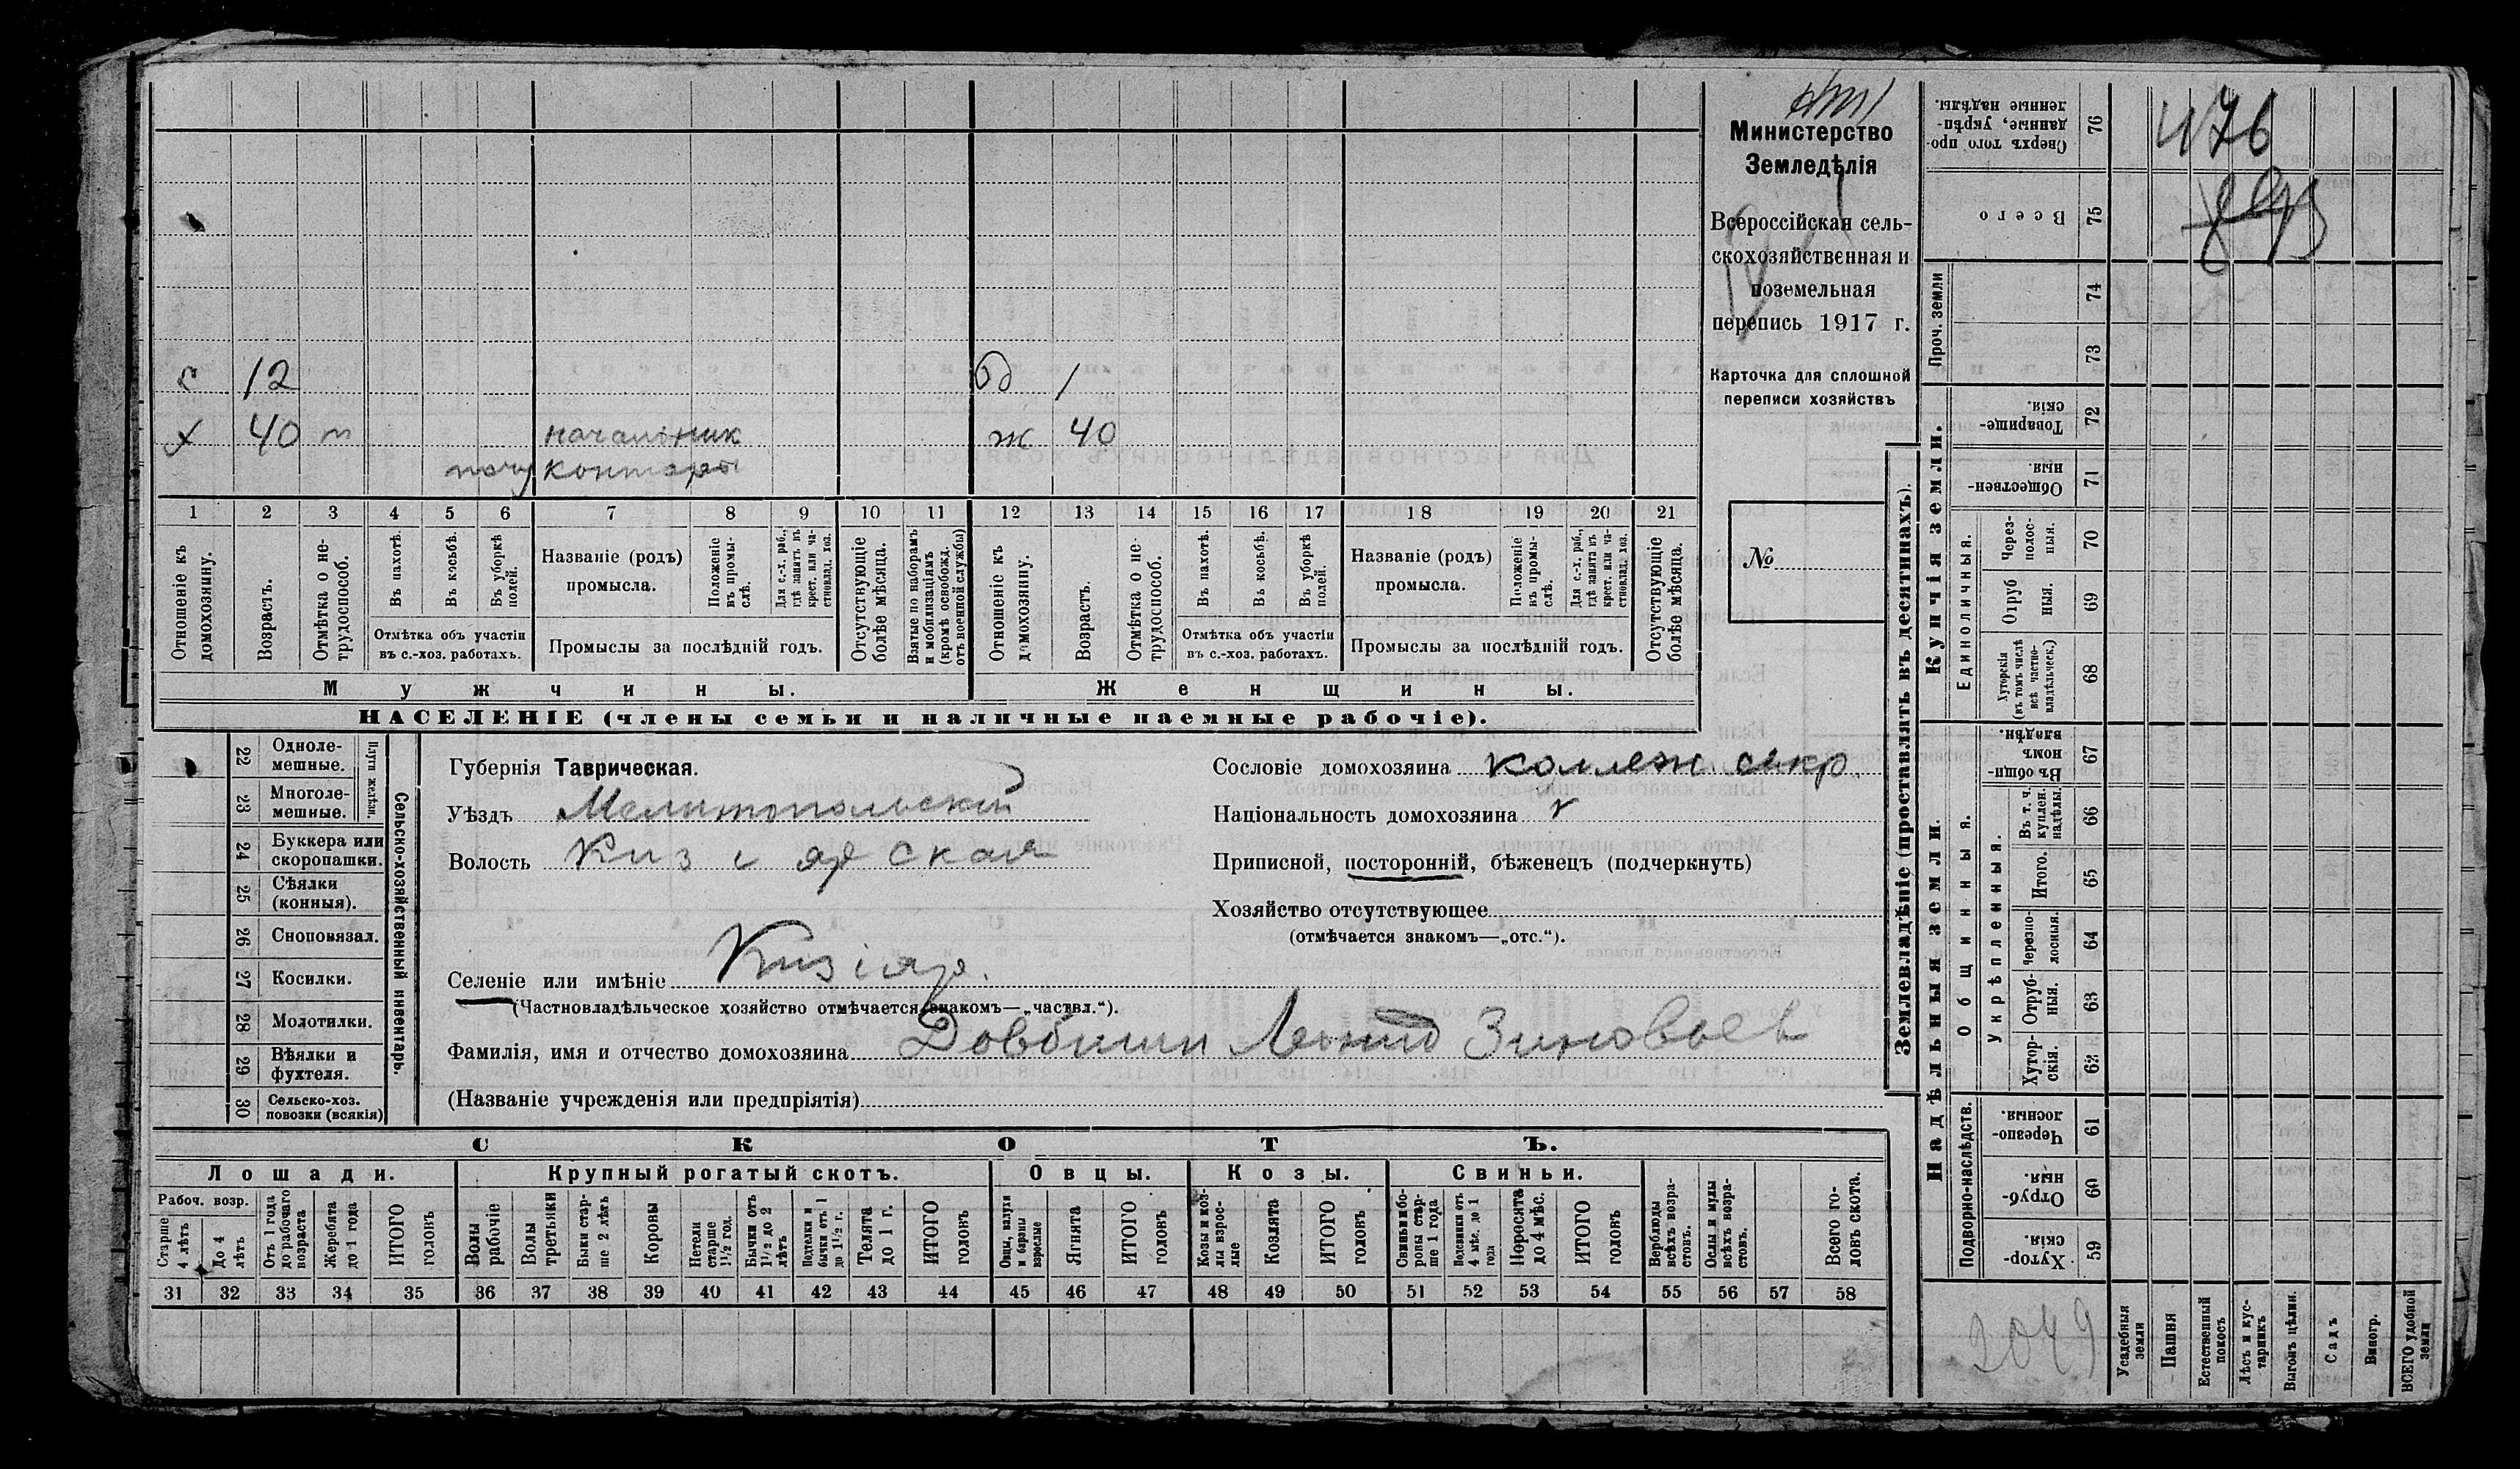 с 12 1
х 40 ж 40
начальник
почт конторы
1 2 3 4 5 6 7 8 9 10 11 12 13 14 15 16 17 18 19 20 21
Отношеніе къ домохозяину.
Возрастъ.
Отмѣтка о не-трудоспособ.
Въ пахотѣ.
Въ косьбѣ.
Въ уборкѣ полей.
Отмѣтка объ участіи
въ с.-хоз. работахъ.
Названіе (родъ)
промысла.
Положеніе въ промы-слѣ.
Для с.-х. раб., гдѣ занятъ въ крест. или ча-стновлад. хоз.
Промыслы за послѣдній годъ.
Отсутствующіе болѣе мѣсяца.
Взятые по наборамъ и мобилизаціямъ (кромѣ освобожд. отъ военной службы)
Отношеніе къ домохозяину.
Возрастъ.
Отмѣтка о не-трудоспособ.
Въ пахотѣ.
Въ косьбѣ.
Въ уборкѣ полей.
Отмѣтка объ участіи
въ с.-хоз. работахъ.
Названіе (родъ)
промысла.
Положеніе въ промы-слѣ.
Для с.-х. раб., гдѣ занятъ въ крест. или ча-стновлад. хоз.
Промыслы за послѣдній годъ.
Отсутствующіе болѣе мѣсяца.
Мужчины. Женщины.
НАСЕЛЕНІЕ (члены семьи и наличные наемные рабочіе).
Министерство
Земледѣлія
Всероссійская сель-
скохозяйственная и
поземельная
перепись 1917 г.
Карточка для сплошной
переписи хозяйствъ
№
22 Одноле-мешные.
23 Многоле-мешные.
Плуги желѣзн.
24 Буккера или скоропашки.
25 Сѣялки (конныя).
26 Сноповязал.
27 Косилки.
28 Молотилки.
29 Вѣялки и фухтеля.
30 Сельско-хоз. повозки (всякія)
Сельско-хозяйственный инвентарь.
Губернія Таврическая.
Уѣздъ Мелитопольскій
Волость Киз і ярская
Селеніе или имѣніе Кизіяр.
(Частновладѣльческое хозяйство отмѣчается знакомъ—„частвл.“).
Фамилія, имя и отчество домохозяина Довбиши Леонид Зиновьев
(Названіе учрежденія или предпріятія)
Сословіе домохозяина коллеж секр.
Національность домохозяина
Приписной, посторонній, бѣженецъ (подчеркнуть)
Хозяйство отсутствующее
(отмѣчается знакомъ—„отс.“).
СКОТЪ.
Лошади. Крупный рогатый скотъ. Овцы. Козы. Свиньи.
Рабоч. возр.
Старше 4 лѣтъ
До 4 лѣтъ
Отъ 1 года до рабочаго возраста
Жеребята до 1 года
ИТОГО головъ
Волы рабочіе
Волы третьяки
Быки стар-ше 2 лѣтъ
Коровы
Нетели старше 1½ год.
Бычки отъ 1½ до 2 лѣтъ
Подтелки и бычки отъ 1 до 1½ г.
Телята до 1 г.
ИТОГО головъ
Овцы, валухи и бараны взрослые
Ягнята
ИТОГО головъ
Козы и коз-лы взрос-лые
Козлята
ИТОГО головъ
Свиньи и бо-ровы стар-ше 1 года
Подсвинки отъ 4 мѣс. до 1 года
Поросята до 4 мѣс.
ИТОГО головъ
Верблюды всѣхъ возра-стовъ.
Ослы и мулы всѣхъ возра-стовъ.
Всего го-ловъ скота.
31 32 33 34 35 36 37 38 39 40 41 42 43 44 45 46 47 48 49 50 51 52 53 54 55 56 57 58
Землевладѣніе (проставлять въ десятинахъ).
Купчія земли.
Надѣльныя земли.
Сверхъ того про-данные, укрѣп-ленные надѣлы. 76
Всего 75
Проч. земли 74
73
Товарище-скія. 72
Обществен-ныя. 71
Единоличныя.
Через-полос-ныя. 70
Отруб ныя. 69
Хуторскія (въ томъ числѣ всѣ частно-владѣльческ.) 68
Общинныя.
Въ общи-номъ владѣн. 67
Укрѣпленныя.
Въ т. ч. куплен. надѣлы. 66
Итого. 65
Черезпо-лосныя. 64
Отруб-ныя. 63
Хутор-скія. 62
Подворно-наслѣдств.
Черезпо-лосныя 61
Отруб-ныя. 60
Хутор-скія. 59
Усадебныя земли
Пашня
Естественный покосъ
Лѣсъ и кус-тарникъ
Выгонъ цѣлин.
Садъ
Виногр.
ВСЕГО удобной земли
476
2049